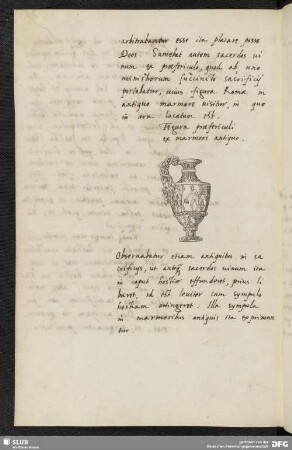 arbitrabantur esse ita placare posse
Deos. Sumebat autem sacerdos ui
num ex praefericulo, quod ab uno
ministrorum succincto sacrificij
portabatur, cuius figura Romae in
antiquo marmore uisitur, in quo
in ara locatum est.
Figura praefericuli
ex marmore antiquo.
Obseruabatur etiam antiquitus in sa
crificijs, ut antequam sacerdos uinum
in caput hostiae effunderet, prius li
baret, id est leuiter cum sympulo
hostiam attingeret. Illa sympula
in marmoribus antiquis ita exprimun
tur.
SLUB
Wir führen Wissen.
gefördert von der
Deutschen Forschungsgemeinschaft
DFG